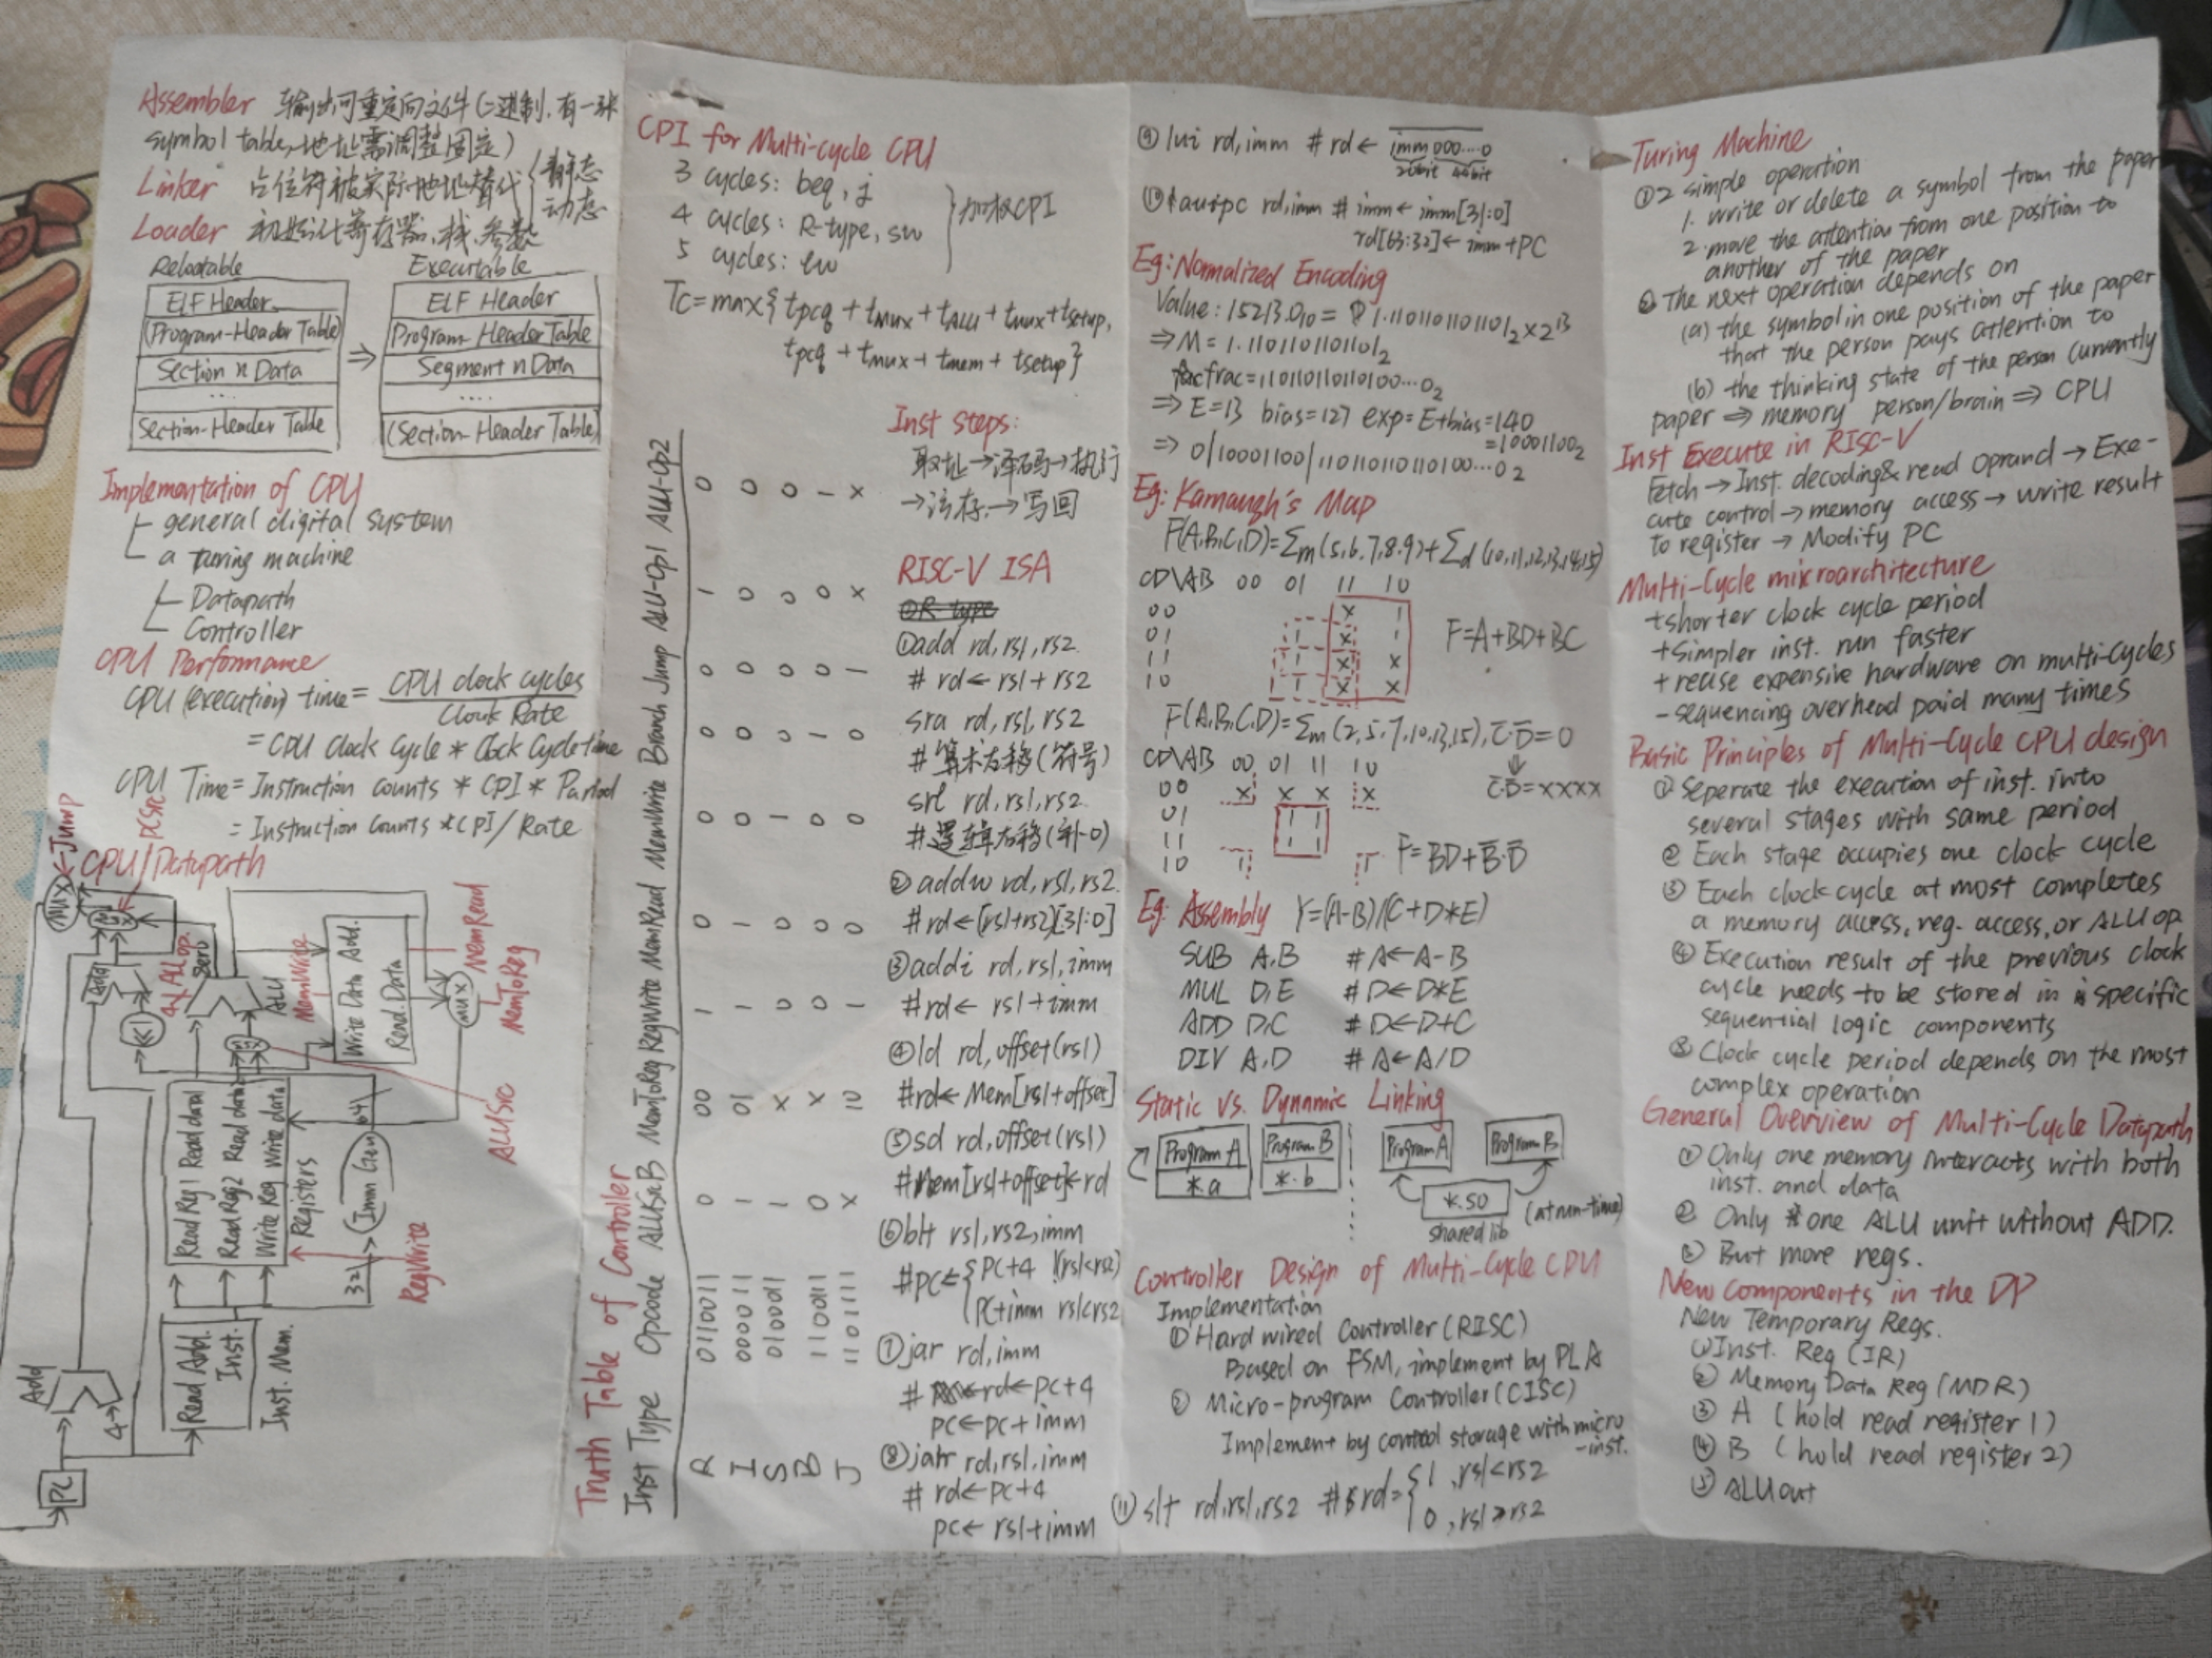 Assembler 输出可重定向文件(二进制,有一张
symbol table,地址需调整固定)
Linker 占位符被实际地址替代{静态
动态
Loader 初始化寄存器,栈,参数
Relocatable
ELF Header
(Program-Header Table)
Section n Data
....
Section-Header Table
⇒
Executable
ELF Header
Program-Header Table
Segment n Data
....
(Section-Header Table)
Implementation of CPU
general digital system
a turing machine
Datapath
Controller
CPU Performance
CPU (execution) time = CPU clock cycles / Clock Rate
= CPU Clock Cycle * Clock Cycle time
CPU Time = Instruction counts * CPI * Period
= Instruction Counts * CPI / Rate
CPU/Datapath
Jump
PCSrc
MUX
Add
<<1
ALUop
4
zero
ALU
MemWrite
Write Data Add.
Read.Data
MUX
MemRead
MemToReg
ALUSrc
Read Reg1 Read data1
Read Reg2 Read data2
Write Reg Write data
Registers
32
Imm Gen
64
RegWrite
Add
4
Read Add.
Inst.
Inst. Mem.
PC
CPI for Multi-cycle CPU
3 cycles: beq, j
4 cycles: R-type, sw
5 cycles: lw
}加权CPI
Tc=max{tpcq + tmux + tALU + tmux + tsetup,
tpcq + tmux + tmem + tsetup}
Truth Table of Controller
Inst Type Opcode ALUSrcB MemToReg RegWrite MemRead MemWrite Branch Jump ALU-Op1 ALU-Op2
R 0110011 0 00 1 0 0 0 0 1 0
I 0000011 1 01 1 1 0 0 0 0 0
S 0100011 1 X 0 0 1 0 0 0 0
B 1100111 0 X 0 0 0 1 0 0 1
J 1101111 X 10 1 0 0 0 1 X X
Inst steps:
取址→译码→执行
→访存→写回
RISC-V ISA
①R-type
①add rd,rs1,rs2
# rd←rs1+rs2
sra rd,rs1,rs2
#算术右移(符号)
srl rd,rs1,rs2
#逻辑右移(补0)
②addw rd,rs1,rs2
#rd←(rs1+rs2)[31:0]
③addi rd,rs1,imm
#rd← rs1+imm
④ld rd,offset(rs1)
#rd← Mem[rs1+offset]
⑤sd rd,offset(rs1)
#Mem[rs1+offset]←rd
⑥blt rs1,rs2,imm
#PC←{PC+4 !(rs1<rs2)
PC+imm rs1<rs2
⑦jar rd,imm
# rd←pc+4
pc←pc+imm
⑧jalr rd,rs1,imm
# rd←pc+4
pc← rs1+imm
⑨lui rd,imm # rd← imm000....0
20bit 44bit
⑩auipc rd,imm # imm← imm[31:0]
rd[63:32]← imm+PC
Eg: Normalized Encoding
Value: 15213.0₁₀ = 1.1101101101101₂×2¹³
⇒M=1.1101101101101₂
frac=110110110110100...0₂
⇒E=13 bias=127 exp=E+bias=140
=10001100₂
⇒ 0/10001100/110110110110100...0₂
Eg: Karnaugh's Map
F(A,B,C,D)=Σm(5,6,7,8,9)+Σd(10,11,12,13,14,15)
CD\AB 00 01 11 10
00 X 1
01 1 X 1
11 1 X X
10 1 X X
F=A+BD+BC
F(A,B,C,D)=Σm(2,5,7,10,13,15), C̄·D̄=0
⇓
CD\AB 00 01 11 10
C̄·D̄=XXXX
00 X X X X
01 1 1
11 1 1
10 1 1
F=BD+B̄·D̄
Eg: Assembly Y=(A-B)/(C+D*E)
SUB A,B #A←A-B
MUL D,E #D←D*E
ADD D,C #D←D+C
DIV A,D #A←A/D
Static vs. Dynamic Linking
Program A
*.a
Program B
*.b
Program A
Program B
*.so
shared lib
(at run-time)
Controller Design of Multi-Cycle CPU
Implementation
① Hard wired Controller (RISC)
Based on FSM, implement by PLA
② Micro-program Controller (CISC)
Implement by control storage with micro
-inst.
⑪ slt rd,rs1,rs2 # rd={1 ,rs1<rs2
0 ,rs1≥rs2
Turing Machine
①2 simple operation
1. write or delete a symbol from the paper
2. move the attention from one position to
another of the paper
②The next operation depends on
(a) the symbol in one position of the paper
that the person pays attention to
(b) the thinking state of the person currently
paper ⇒ memory person/brain ⇒ CPU
Inst Execute in RISC-V
Fetch → Inst. decoding& read Oprand → Exe-
cute control → memory access → write result
to register → Modify PC
Multi-Cycle microarchitecture
+shorter clock cycle period
+simpler inst. run faster
+ reuse expensive hardware on multi-cycles
-sequencing overhead paid many times
Basic Principles of Multi-Cycle CPU design
① Seperate the execution of inst. into
several stages with same period
② Each stage occupies one clock cycle
③ Each clock cycle at most completes
a memory access, reg. access, or ALU op
④ Execution result of the previous clock
cycle needs to be stored in specific
sequential logic components
⑤ Clock cycle period depends on the most
complex operation
General Overview of Multi-Cycle Datapath
① Only one memory interacts with both
inst. and data
② Only one ALU unit without ADD.
③ But more regs.
New Components in the DP
New Temporary Regs.
①Inst. Reg (IR)
② Memory Data Reg (MDR)
③ A (hold read register 1)
④ B (hold read register 2)
⑤ ALU out